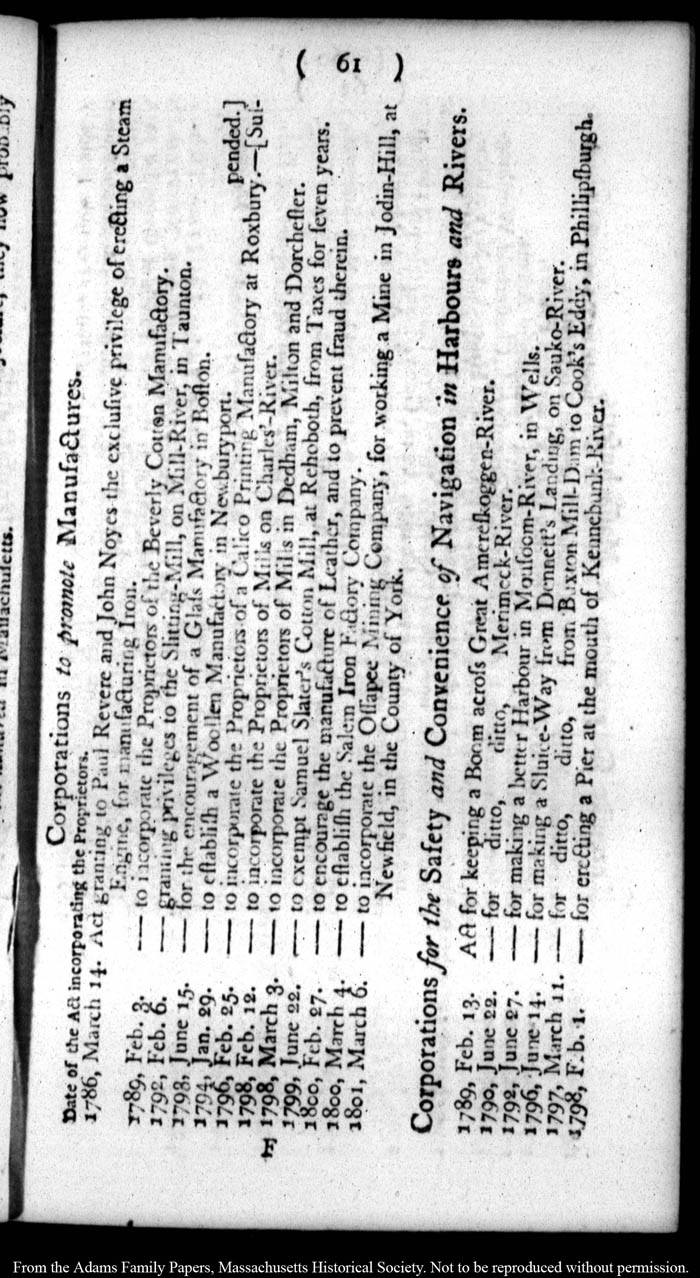 they now probably
Maſſachuſetts.
( 61 )
Corporations to promote Manufactures.
Date of the Act incorporating the Proprietors.
1786, March 14. Act granting to Paul Revere and John Noyes the excluſive privilege of erecting a Steam
Engine, for manufacturing Iron.
1789, Feb. 3. — to incorporate the Proprietors of the Beverly Cotton Manufactory.
1792, Feb. 6. — granting privileges to the Slitting-Mill, on Mill-River, in Taunton.
1793, June 15. — for the encouragement of a Glaſs Manufactory in Boſton.
1794, Jan. 29. — to eſtabliſh a Woollen Manufactory in Newburyport. pended.]
1796, Feb. 25. — to incorporate the Proprietors of a Calico Printing Manufactory at Roxbury.—[Suſ-
1798, Feb. 12. — to incorporate the Proprietors of Mills on Charles'-River.
1798, March 3. — to incorporate the Proprietors of Mills in Dedham, Milton and Dorcheſter.
1799, June 22. — to exempt Samuel Slater's Cotton Mill, at Rehoboth, from Taxes for ſeven years.
1800, Feb. 27. — to encourage the manufacture of Leather, and to prevent fraud therein.
1800, March 4. — to eſtabliſh the Salem Iron Factory Company.
1801, March 6. — to incorporate the Oſſapee Mining Company, for working a Mine in Jodin-Hill, at
Newfield, in the County of York.
Corporations for the Safety and Convenience of Navigation in Harbours and Rivers.
1789, Feb. 13. Act for keeping a Boom acroſs Great Amereſkoggen-River.
1790, June 22. — for ditto, ditto, Merimeck-River.
1792, June 27. — for making a better Harbour in Mouſoom-River, in Wells.
1796, June 14. — for making a Sluice-Way from Dennett's Landing, on Sauko-River.
1797, March 11. — for ditto, ditto, from Buxton Mill-Dam to Cook's Eddy, in Phillipſburgh.
1798, Feb. 1. — for erecting a Pier at the mouth of Kennebunk-River.
From the Adams Family Papers, Massachusetts Historical Society. Not to be reproduced without permission.